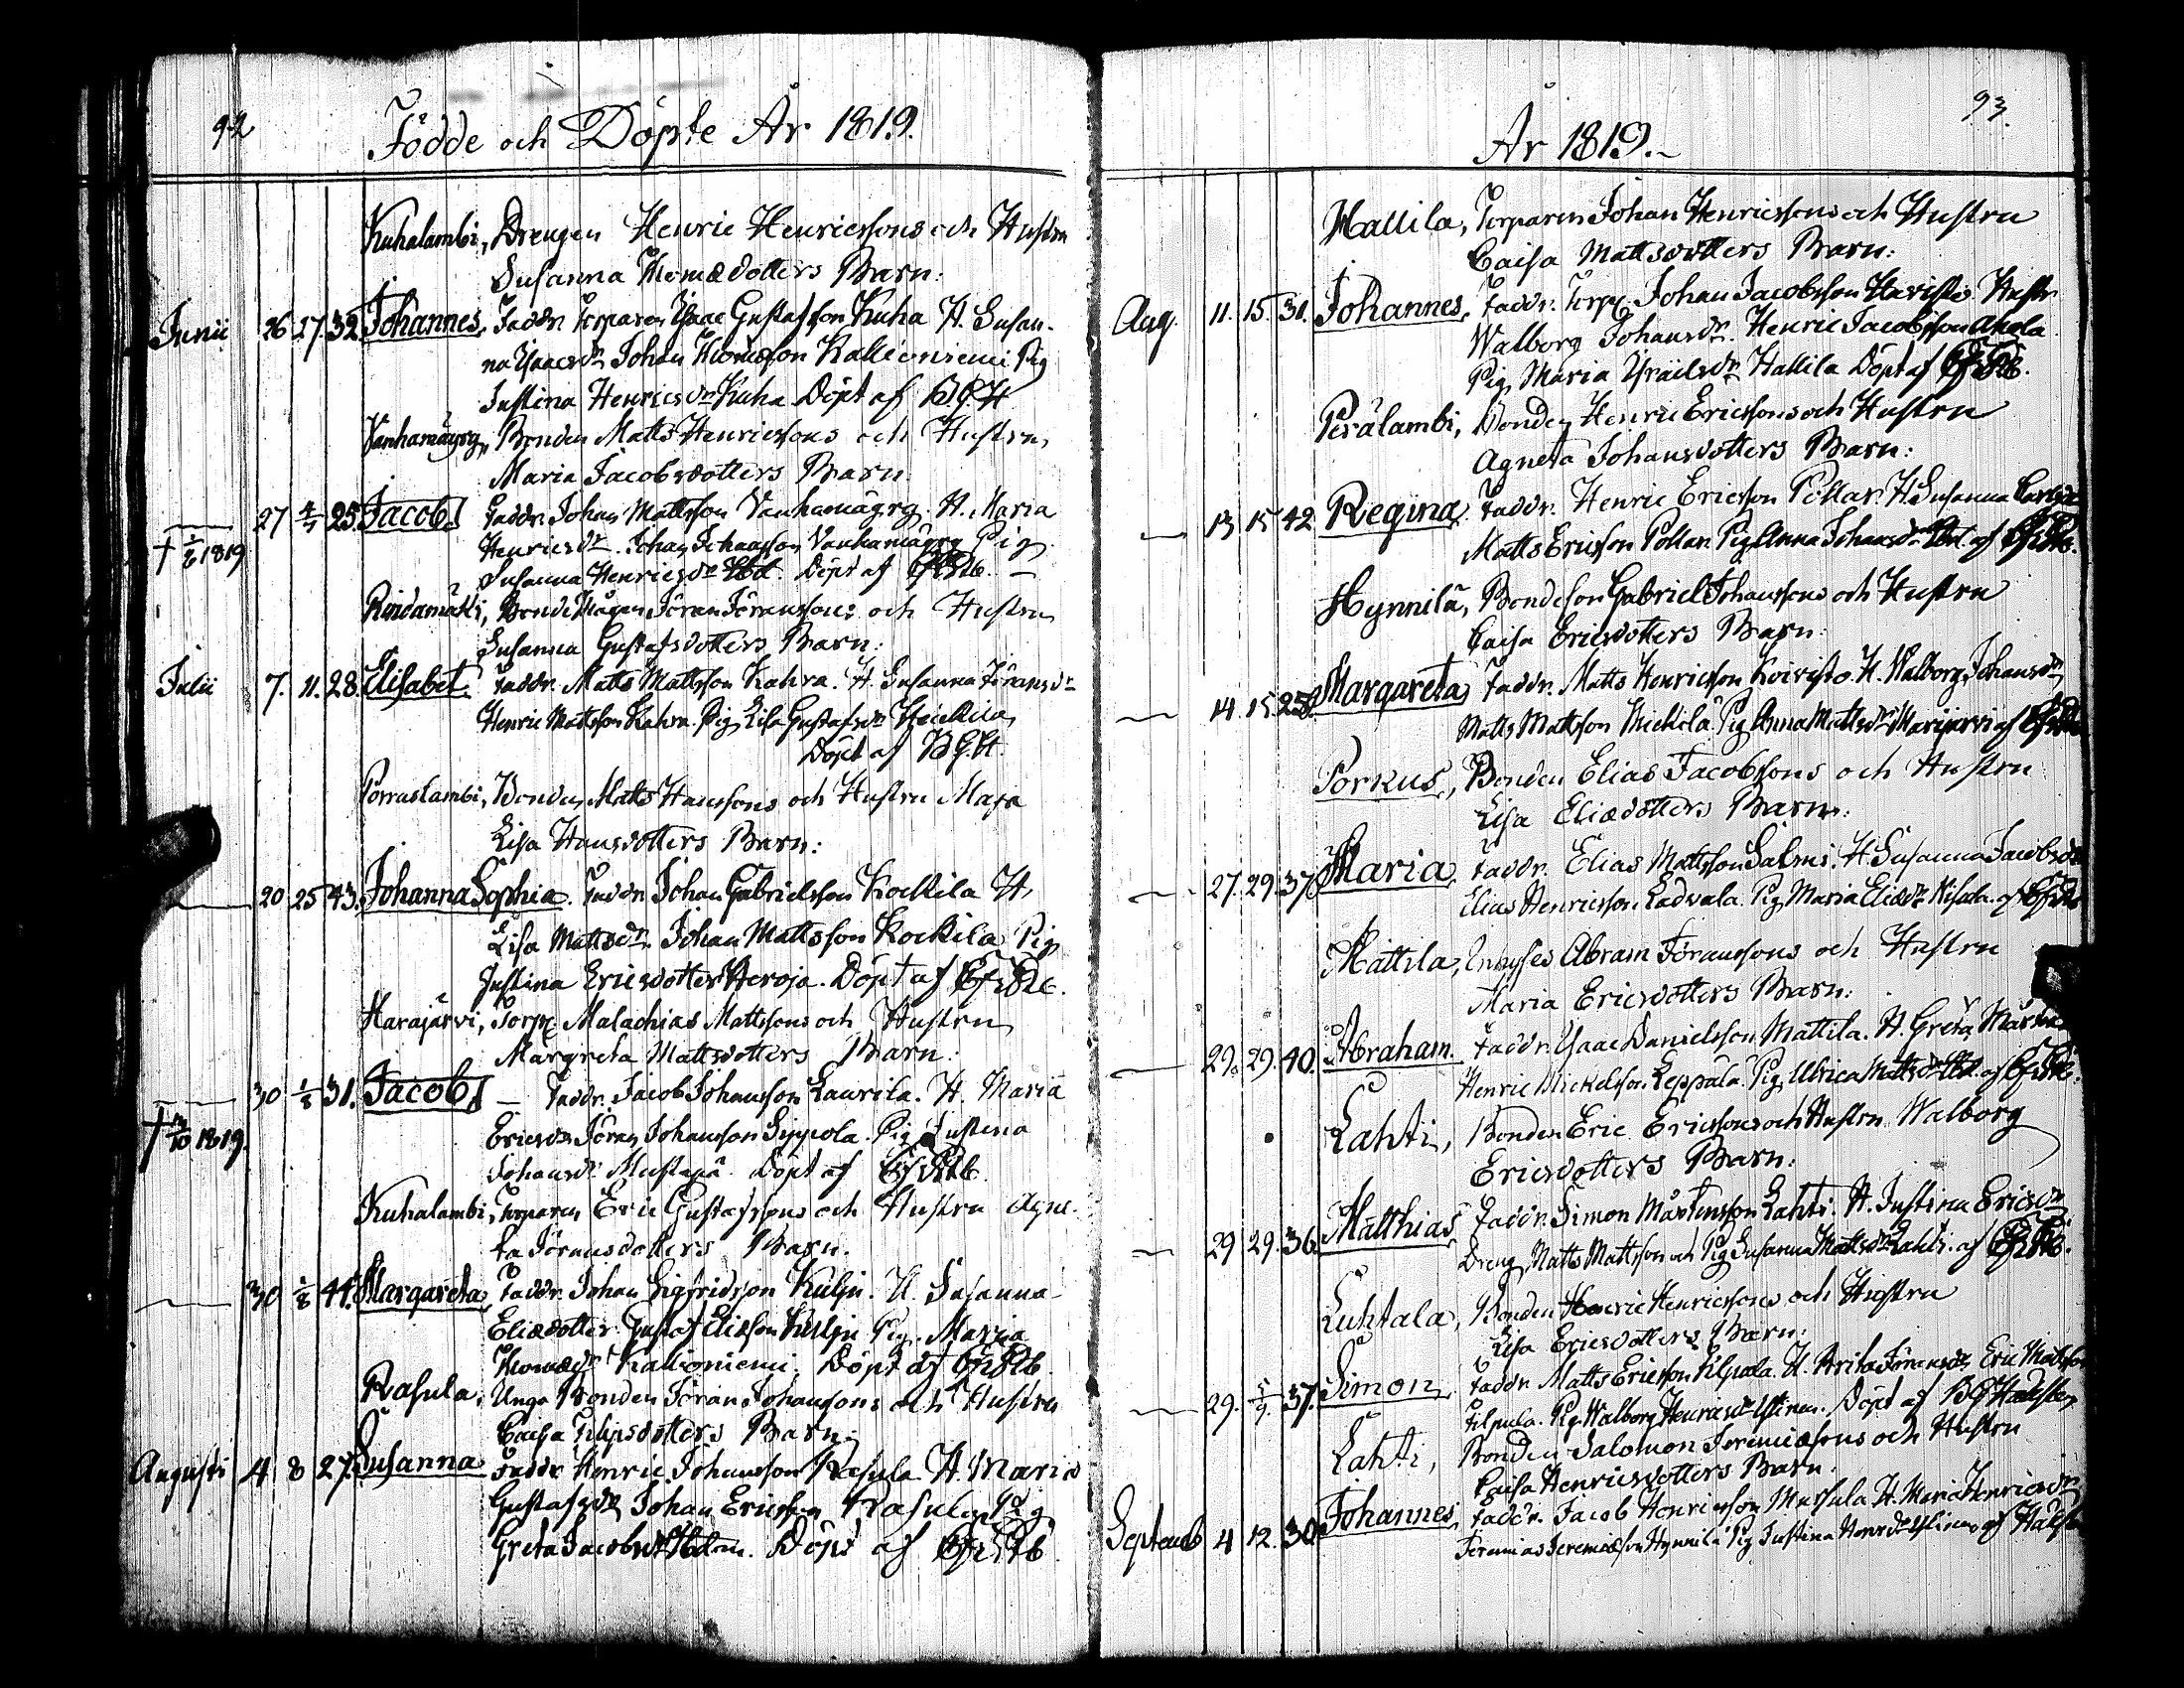 92
Födde och Döpte År 1819.
Kuhalambi, Drengen Henric Henricssons och Hustru
Susanna Thomædotters Barn:
Junii 26 27. 32. Johannes, Faddr. Torparen Isaac Gustafsson Kuha H. Susan-
na Isacsdr Johan Thomasson Kallioniemi Pig
Justina Henricsdr Kuha Döpt af
Vanhamägrg, Bonden Matts Henricssons och Hustru
Maria Jacobsdotters Barn
27 4/7 25 Jacob Faddr. Johan Mattsson Vanhamägrg. H. Maria
1819 Henricsdr. Johan Johansson Vanhamägrg Pig
Susanna Henricsdr Döpt af
och Hustru
Susanna Gustafsdotters Barn:
Julii 7. 11. 28. Elisabet. Faddr. Matts Mattsson Kahra. H. Susanna Göransdr
Henric Mattsson Kahra. Pig Lisa Gustafsdr Heickila
Döpt af
Porraslambi, Bonden Matts Hanssons och Hustru Maja
Lisa Hansdotters Barn:
20 25 43. Johanna Sophia. Faddr. Johan Gabrielsson Kockila H.
Lisa Mattsdr. Johan Mattsson Kockila Pig
Justina Ericsdotter Heroja. Döpt af
Harajärvi, Torp. Malachias Mattssons och Hustru
Margreta Mattsdotters Barn:
30 1/8 31. Jacob — Faddr. Jacob Johansson Laurila. H. Maria
1819. Ericsdr Göran Johansson Seppola. Pig Justina
Johansdr Mustapä. Döpt af
Kuhalambi, Torparen Eric Gustafssons och Hustru Agne-
ta Göransdotters Barn.
30 1/8 44. Margareta, Faddr. Johan Sigfridsson Kulju. H. Susanna
Eliædotter. Gustaf Eliæson Kulju Pig. Maria
Thomædr Kallioniemi. Döpt af
Rasula, Unga Bonden Göran Johanssons och Hustru
Caisa Filipsdotters Barn.
Augusti 4 8 27. Susanna Faddr Henric Johansson Rasula H. Maria
Gustafsdr Johan Ericsson Rasula Pig
Greta Jacobsdr Döpt af
93.
År 1819.
Hallila, Torparen Johan Henricssons och Hustru
Caisa Mattsdotters Barn:
Aug. 11. 15. 31. Johannes, Faddr. Torp. Johan Jacobsson Haristo Hustr
Walborg Johansdr. Henric Jacobsson Akola
Pig Maria Israelsdr Hallila Döpt af
Perälambi, Bonden Henric Ericssons och Hustru
Agneta Johansdotters Barn:
13 15 42 Regina. Faddr. Henric Ericsson Pollar. H. Susanna
Matts Ericsson Pollar. Pig Anna Johansdr af
Hynnilä, Bondeson Gabriel Johanssons och Hustru
Caisa Ericsdotters Barn:
14. 15. Margareta Faddr. Matts Henricsson Koivisto. H. Walborg Johansdr
Matts Mattsson Mickilä. Pig Anna Mattsdr af
Porkus, Bonden Elias Jacobssons och Hustru
Lisa Eliædotters Barn:
27. 29. 37. Maria, Faddr. Elias Mattsson Salmi. H. Susanna Jacobsdr
Elias Henricsson Ladvala. Pig Maria Eliædr af
Mattila, Abram Göranssons och Hustru
Maria Ericsdotters Barn:
29. 29. 40. Abraham. Faddr. Isaac Danielsson Mattila. H. Greta
Henric Mickelsson Leppälä. Pig Ulrica Mattsdr af
Lahti, Bonden Eric Ericssons och Hustru Walborg
Ericsdotters Barn:
29 29. 36. Matthias, Faddr. Simon Mårtensson Lahti. H. Justina Ericsdr
Dreng Matts Mattsson och Pig Susanna Mattsdr Lahti. af
Luhtala, Bonden Henric Henricssons och Hustru
Lisa Ericsdotters Barn:
29. 5/9. 37. Simon, Faddr. Matts Ericsson Filpula. H. Brita Göransdr Eric Mattsson
Filpula. Pig Walborg Döpt af
Lahti, Bonden Salomon Jeremiæsons och Hustru
Caisa Henricsdotters Barn.
Septemb 4 12. 30 Johannes, Faddr. Jacob Henricsson Mursula H. Maria Henricsdr
Jeremias Jeremiæson Hynnilä Pig Justina af